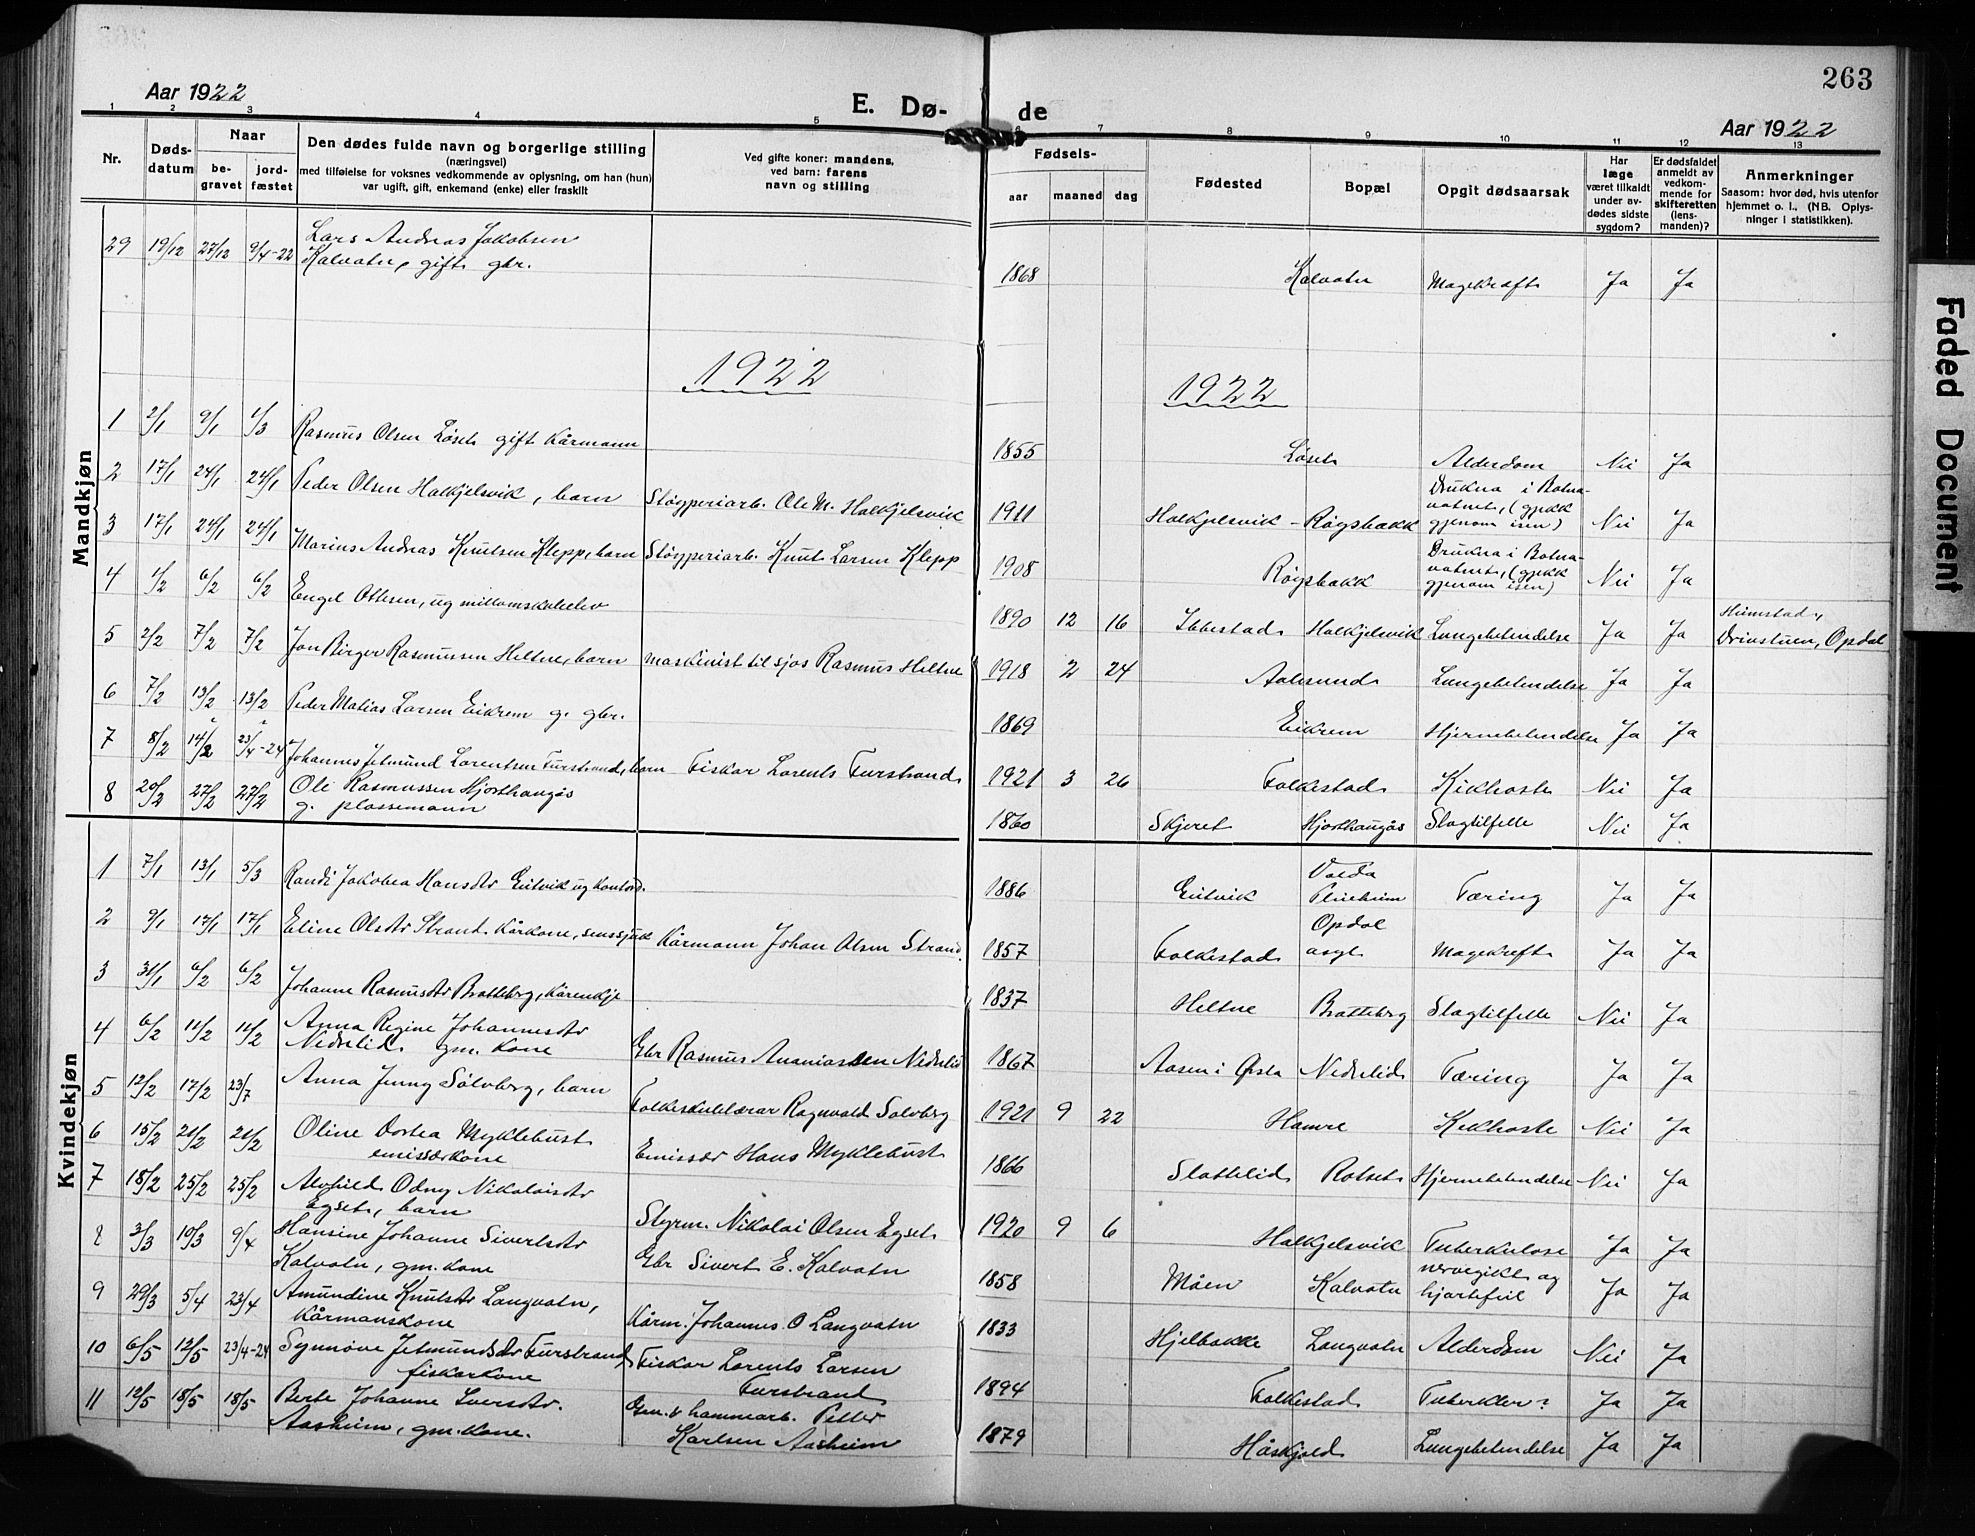 263
Aar 1922
E. Dø-
de
Aar 1922
1 2 3 4 5 6 7 8 9 10 11 12 13
Nr.
Døds-
datum
Naar
be-
gravet
jord-
fæstet
Den dødes fulde navn og borgerlige stilling
(næringsvei)
med tilføielse for voksnes vedkommende av oplysning, om han (hun)
var ugift, gift, enkemand (enke) eller fraskilt
Ved gifte koner: mandens,
ved barn: farens
navn og stilling
Fødsels-
aar maaned dag
Fødested
Bopæl
Opgit dødsaarsak
Har
læge
været tilkaldt
under av-
dødes sidste
sygdom?
Er dødsfaldet
anmeldt av
vedkom-
mende for
skifteretten
(lens-
manden)?
Anmerkninger
Saasom: hvor død, hvis utenfor
hjemmet o. l., (NB. Oplys-
ninger i statistikken).
Faded Document
Mandkjøn
29 19/12 27/12 9/4-22 Lars Andreas Jakobsen
Kalvatn, gift gbr. 1868 Kalvatn Magekræft Ja Ja
1922 1922
1 2/1 9/1 1/3 Rasmus Olsen Løset gift kårmann 1855 Løset Alderdom Nei Ja
2 17/1 24/1 24/1 Peder Olsen Halkjelsvik, barn Støyperiarb. Ole M. Halkjelsvik 1911 Halkjelsvik - Røysbakk Drukna i Botna-
vatnet, (gjekk
gjenom isen) Nei Ja
3 17/1 24/1 24/1 Marius Andreas Knutsen Klepp, barn Støyperiarb. Knut Larsen Klepp 1908 Røysbakk Drukna i Botna-
vatnet, (gjekk
gjenom isen) Nei Ja
4 1/2 6/2 6/2 Engel Ottesen, ug millomskuleelev 1890 12 16 Ibbestad Halkjelsvik Lungebetendelse Ja Ja Heimstad,
Drivstuen, Opdal
5 2/2 7/2 7/2 Jon Birger Rasmussen Heltne, barn maskinist til sjøs Rasmus Heltne 1918 2 24 Aalesund Lungebetendelse Ja Ja
6 7/2 13/2 13/2 Peder Matias Larsen Eikrem g. gbr. 1869 Eikrem Hjernebetendelse Ja Ja
7 8/2 14/2 23/4-24 Johannes Jetmund Lorentsen Furstrand, barn Fiskar Lorents Furstrand 1921 3 26 Folkestad Kikhoste Nei Ja
8 20/2 27/2 27/2 Ole Rasmussen Hjorthaugås
g. plassemann 1860 Skjeret Hjorthaugås Slagtilfelle Nei Ja
Kvindekjøn
1 7/1 13/1 5/3 Randi Jakobea Hansdtr Eitvik ug kontord. 1886 Eitvik Volda
Pleieheim Tæring Ja Ja
2 9/1 17/1 17/1 Eline Olsdtr Strand. Kårkone, sinssjuk Kårmann Johan Olsen Strand. 1857 Folkestad Opdøl
asyl Magekreft Ja Ja
3 31/1 6/2 6/2 Johanne Rasmusdtr Bratteberg, kårenkje 1837 Heltne Bratteberg Slagtilfelle Nei Ja
4 6/2 11/2 11/2 Anna Regine Johannesdtr
Nedrelid gm. kone Gbr Rasmus Ananiassen Nedrelid 1867 Aasen i Ørsta Nedrelid Tæring Ja Ja
5 12/2 17/2 23/7 Anna Jenny Sølvberg, barn Folkeskulelærar Ragnvald Sølvberg 1921 9 22 Hamre Kikhoste Nei Ja
6 15/2 21/2 21/2 Oline Dortea Myklebust
emissærkone Emissær Hans Myklebust 1866 Slottelid Rotset Hjernebetendelse Nei Ja
7 18/2 25/2 25/2 Alvhild Odny Nikolaisdtr
Egset, barn Styrm. Nikolai Olsen Egset 1920 9 6 Halkjelsvik Tuberkulose Ja Ja
8 3/3 10/3 9/4 Hansine Johanne Sivertsdtr
Kalvatn, gm. kone Gbr Sivert E. Kalvatn 1858 Måen Kalvatn nervegikt og
hjartefeil Ja Ja
9 29/3 5/4 23/4 Amundine Knutsdtr Langvatn,
Kårmanskone Kårm. Johannes O Langvatn 1833 Hjelbakke Langvatn Alderdom Nei Ja
10 6/5 12/5 23/4-24 Synnøve Jetmundsdtr Furstrand
fiskarkone Fiskar Lorents Larsen
Furstrand 1894 Folkestad Tuberkler? Ja Ja
11 12/5 18/5 18/5 Berte Johanne Iversdtr.
Aasheim, gm. kone. Gm. & hammarb. Petter
Karlsen Aasheim 1879 Håskjold Lungebetendelse Ja Ja